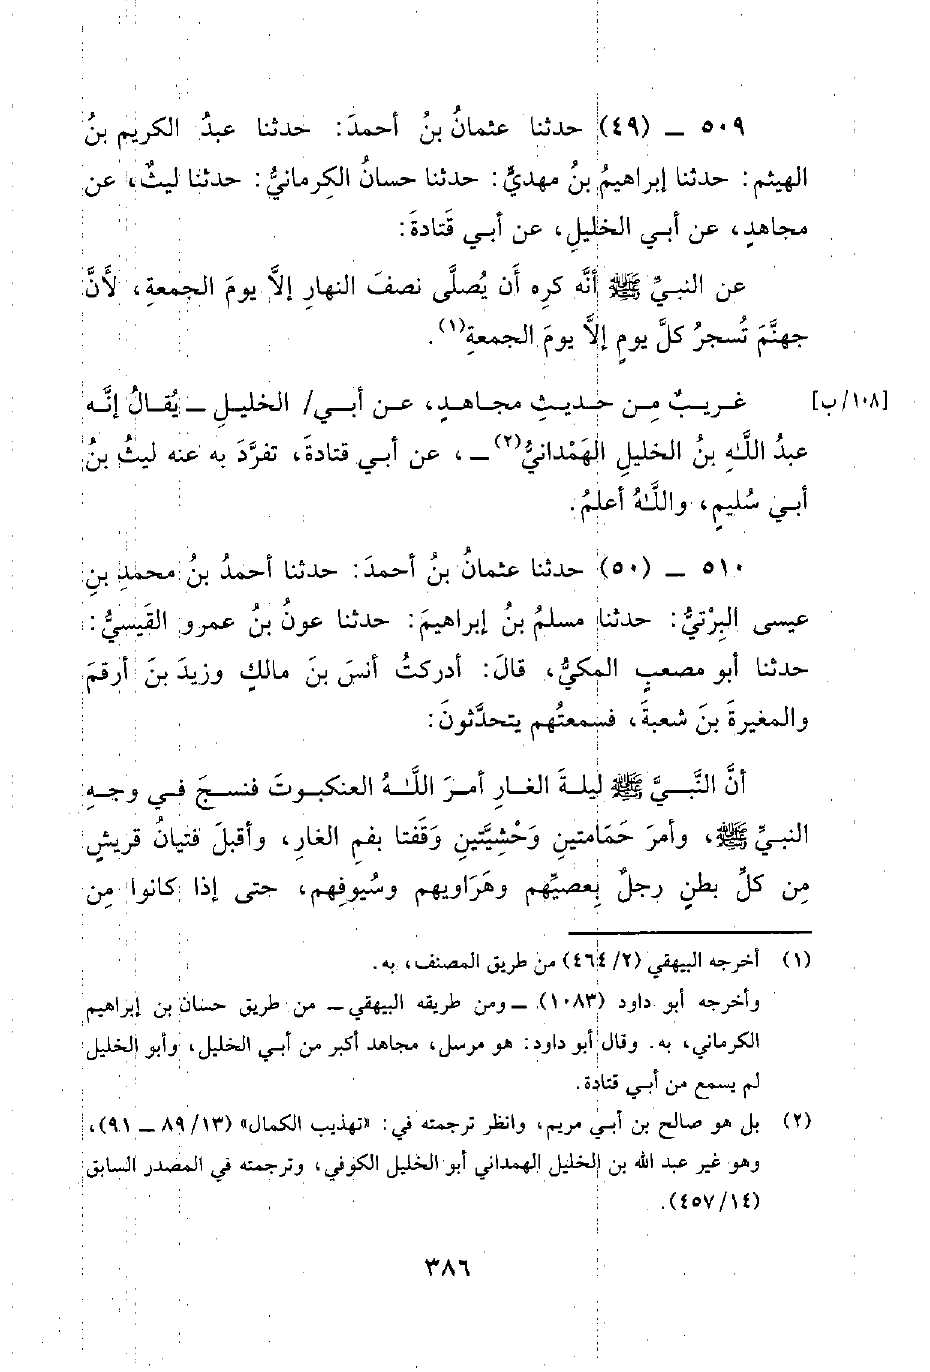 ٥٠٩ ــ (٤٩) حدثنا عثمانُ بنُ أحمدَ: حدثنا عبدُ الكريم بنُ
الهيثم: حدثنا إبراهيمُ بنُ مهديٍّ: حدثنا حسانُ الكرمانيُّ: حدثنا ليثٌ، عن
مجاهدٍ، عن أبي الخليلِ، عن أبي قَتادةَ:
عن النبيِّ ﷺ أنَّه كره أَن يُصلَّى نصفَ النهارِ إلَّا يومَ الجمعةِ، لأَنَّ
جهنَّمَ تُسجرُ كلَّ يومٍ إلَّا يومَ الجمعةِ(١).
[١٠٨/ب] غريبٌ مِن حديثِ مجاهدٍ، عن أبي/ الخليلِ ــ يُقالُ إنَّه
عبدُ اللَّهِ بنُ الخليلِ الهَمْدانيُّ(٢) ــ، عن أبي قتادةَ، تفرَّدَ به عنه ليثُ بنُ
أبي سُليمٍ، واللَّهُ أعلمُ.
٥١٠ ــ (٥٠) حدثنا عثمانُ بنُ أحمدَ: حدثنا أحمدُ بنُ محمدِ بنِ
عيسى البِرْتيُّ: حدثنا مسلمُ بنُ إبراهيمَ: حدثنا عونُ بنُ عمرو القَيسيُّ:
حدثنا أبو مصعبٍ المكيُّ، قالَ: أدركتُ أنسَ بنَ مالكٍ وزيدَ بنَ أرقمَ
والمغيرةَ بنَ شعبةَ، فسمعتُهم يتحدَّثونَ:
أنَّ النَّبيَّ ﷺ ليلةَ الغارِ أمرَ اللَّهُ العنكبوتَ فنسجَ في وجهِ
النبيِّ ﷺ، وأمرَ حَمَامتينِ وَحْشِيَّتينِ وَقَفتا بفمِ الغارِ، وأقبلَ فتيانُ قريشٍ
مِن كلِّ بطنٍ رجلٌ بِعصيِّهم وهَرَاويهم وسُيوفِهم، حتى إذا كانوا مِن
(١) أخرجه البيهقي (٢/ ٤٦٤) من طريق المصنف، به.
وأخرجه أبو داود (١٠٨٣) ــ ومن طريقه البيهقي ــ من طريق حسان بن إبراهيم
الكرماني، به. وقال أبو داود: هو مرسل، مجاهد أكبر من أبي الخليل، وأبو الخليل
لم يسمع من أبي قتادة.
(٢) بل هو صالح بن أبي مريم، وانظر ترجمته في: «تهذيب الكمال» (١٣/ ٨٩ ــ ٩١)،
وهو غير عبد الله بن الخليل الهمداني أبو الخليل الكوفي، وترجمته في المصدر السابق
(١٤/ ٤٥٧).
٣٨٦